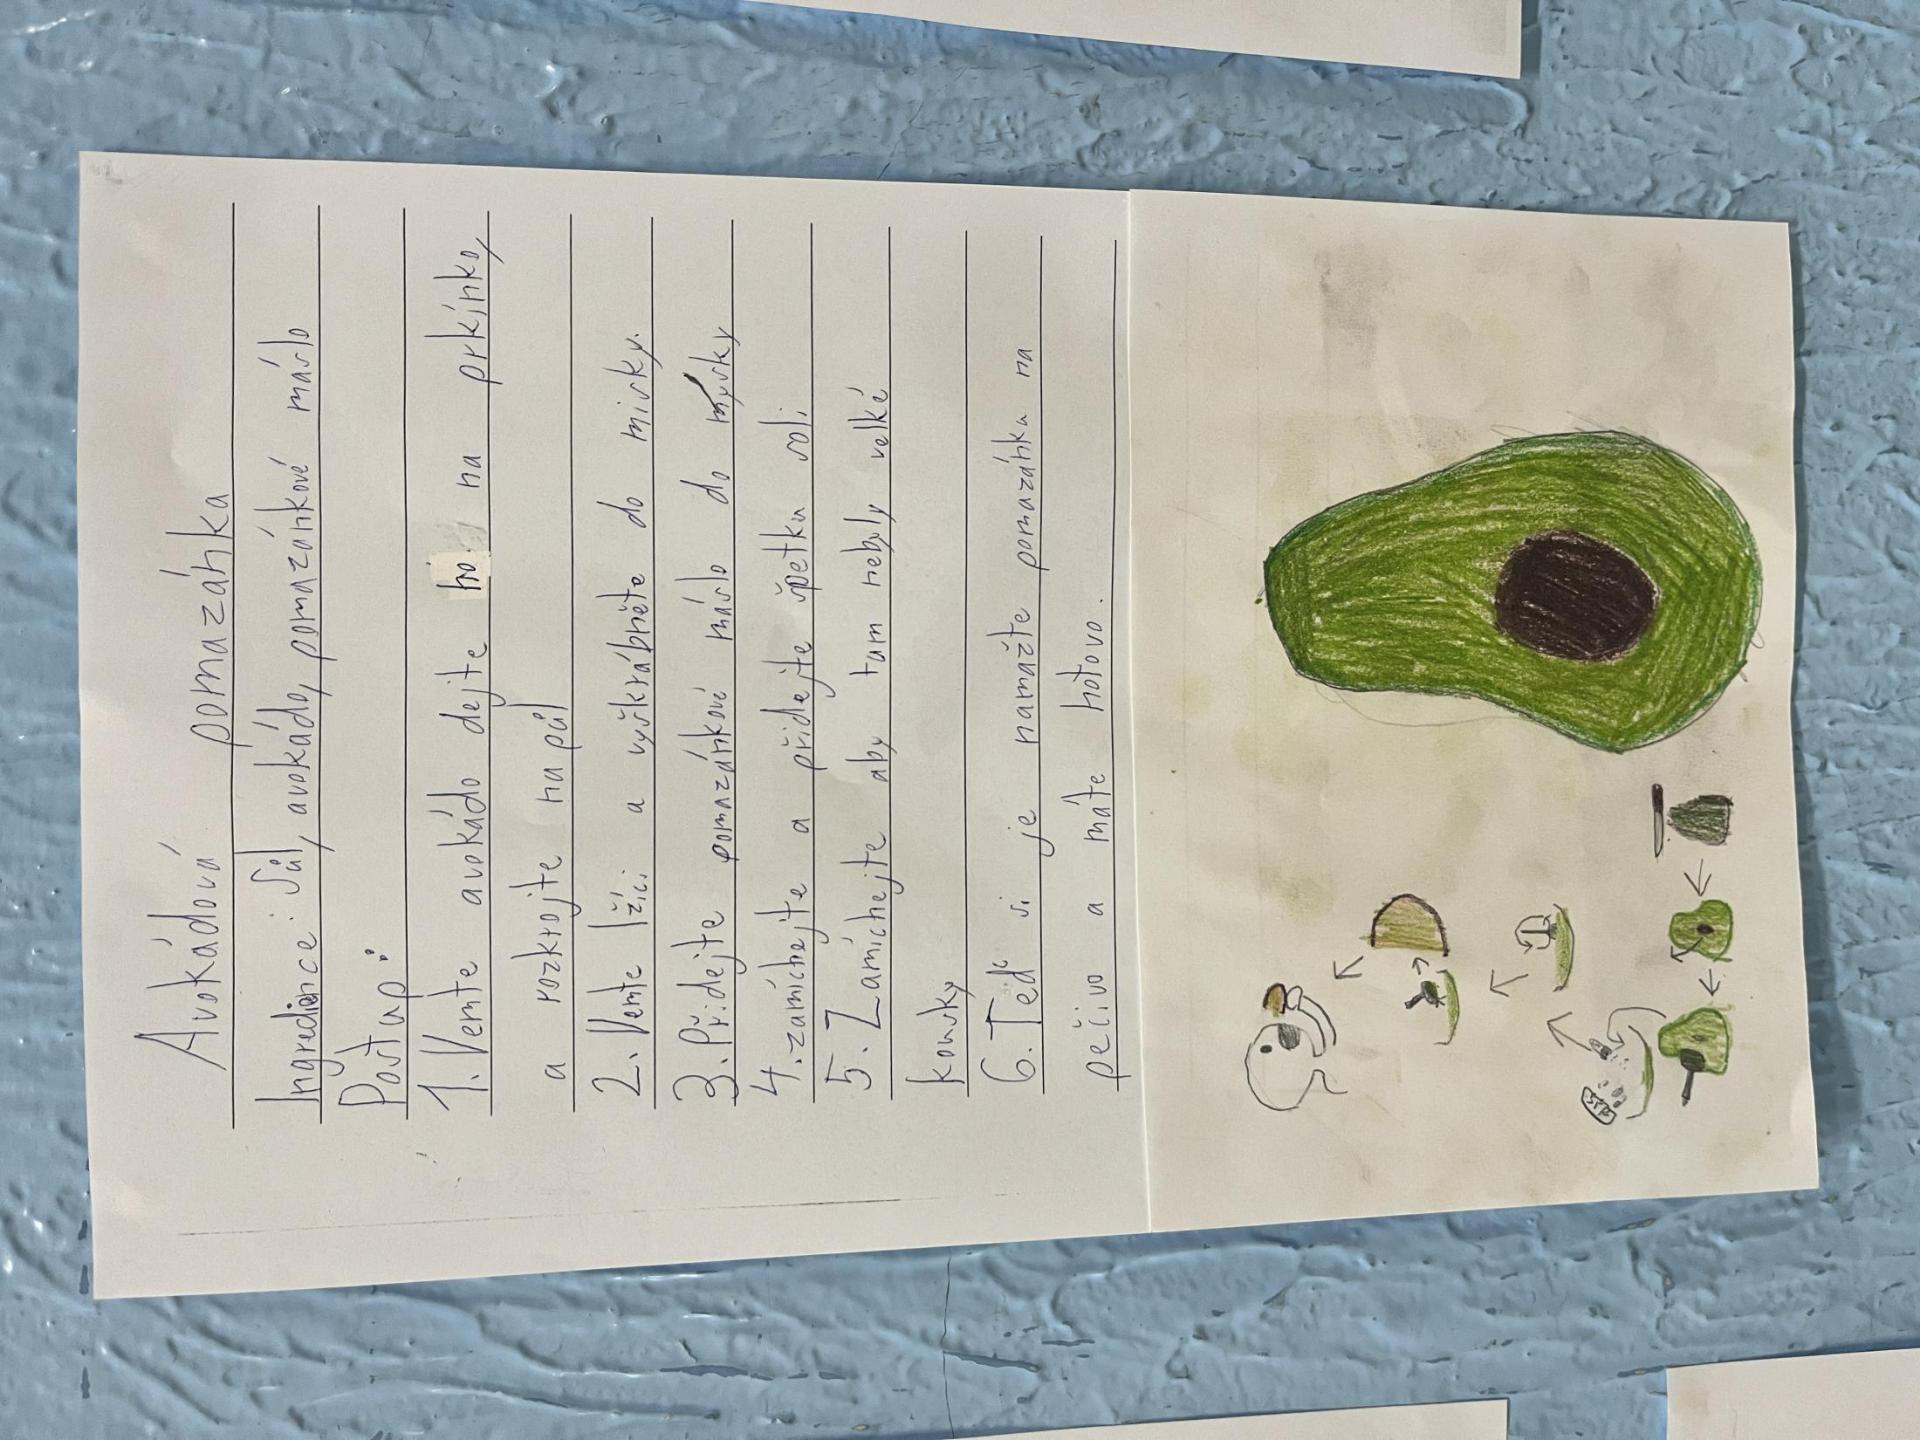 Avokádová pomazánka
Ingredience: Sůl, avokádo, pomazánkové máslo
Postup:
1. Vemte avokádo dejte ho na prkínko,
a rozkrojte na půl
2. Vemte lžíci a vyškrábněte do misky.
3. Přidejte pomazánkové máslo do mysky
4. zamíchejte a přidejte špetku soli.
5. Zamíchejte aby tam nebyly velké
kousky
6. Teď si je namažte pomazánku na
pečivo a máte hotovo.